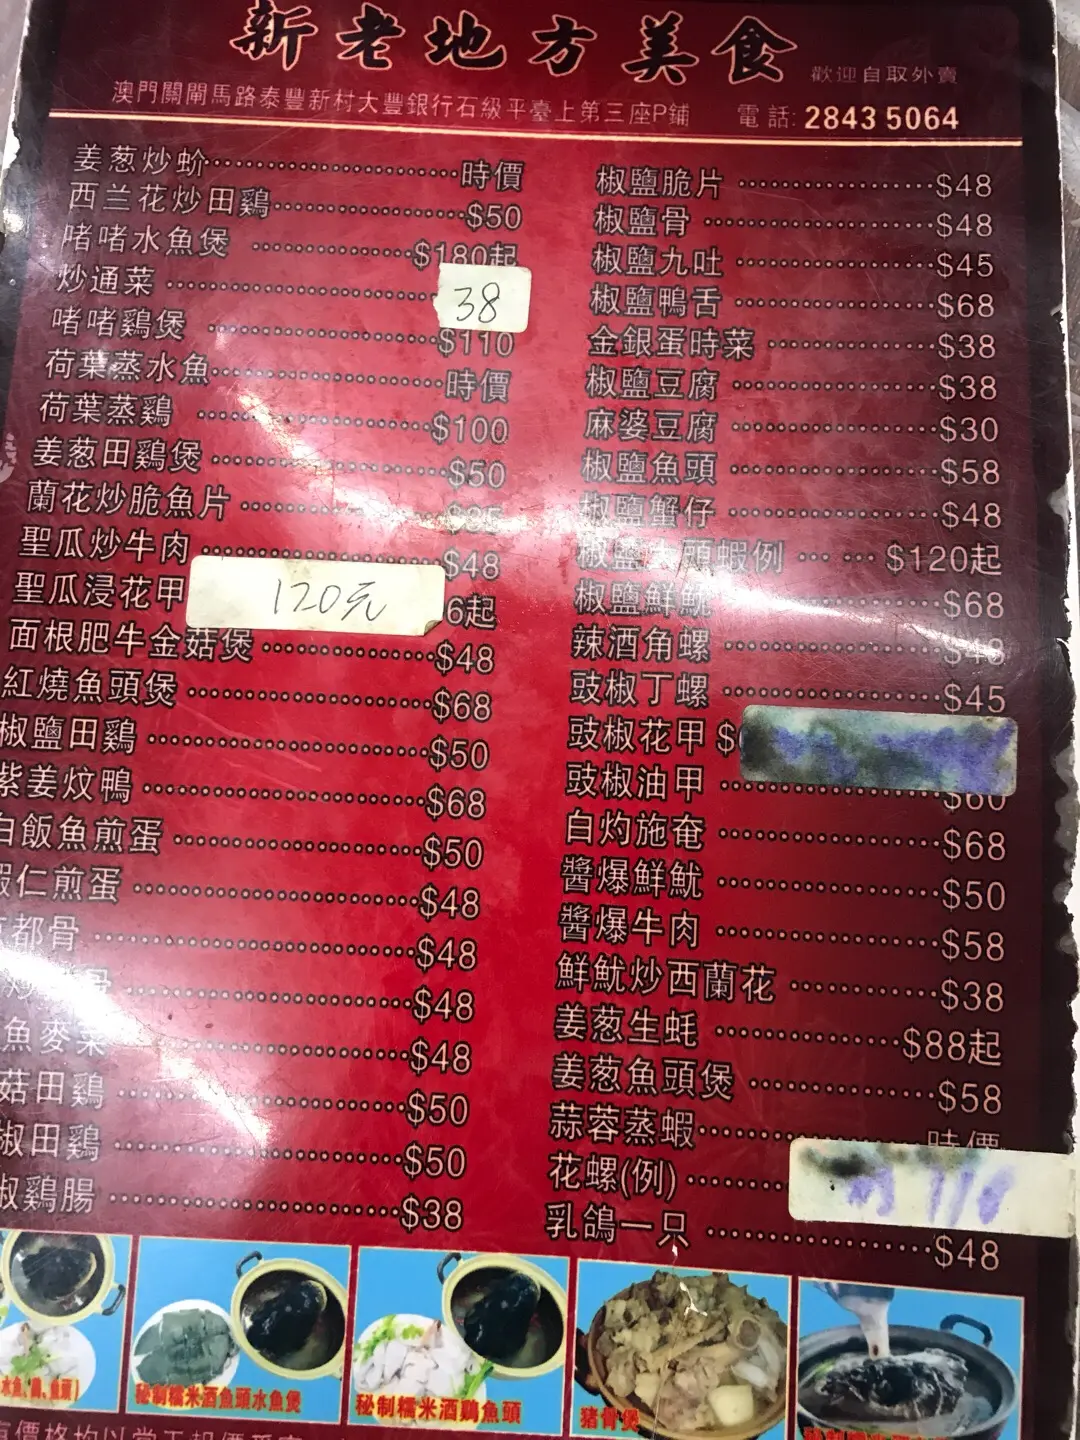 新老地方美食
歡迎自取外賣
澳門關閘馬路泰豐新村大豐銀行石級平臺上第三座P鋪 電話: 2843 5064
姜葱炒蚧 時價
西兰花炒田鷄 $50
啫啫水魚煲 $180起
炒通菜 38
啫啫鷄煲 $110
荷葉蒸水魚 時價
荷葉蒸鷄 $100
姜葱田鷄煲 $50
蘭花炒脆魚片
聖瓜炒牛肉 $48
聖瓜浸花甲 120元 6起
面根肥牛金菇煲 $48
紅燒魚頭煲 $68
椒鹽田鷄 $50
紫姜炆鴨 $68
白飯魚煎蛋 $50
蝦仁煎蛋 $48
都骨 $48
骨 $48
魚麥菜 $48
菇田鷄 $50
椒田鷄 $50
椒鷄腸 $38
椒鹽脆片 $48
椒鹽骨 $48
椒鹽九吐 $45
椒鹽鴨舌 $68
金銀蛋時菜 $38
椒鹽豆腐 $38
麻婆豆腐 $30
椒鹽魚頭 $58
椒鹽蟹仔 $48
椒鹽大頭蝦例 $120起
椒鹽鮮魷 $68
辣酒角螺 $48
豉椒丁螺 $45
豉椒花甲
豉椒油甲 $60
白灼施奄 $68
醬爆鮮魷 $50
醬爆牛肉 $58
鮮魷炒西蘭花 $38
姜葱生蚝 $88起
姜葱魚頭煲 $58
蒜蓉蒸蝦 時價
花螺(例)
乳鴿一只 $48
水魚、鷄、魚頭)
秘制糯米酒魚頭水魚煲
秘制糯米酒鷄魚頭
豬骨煲